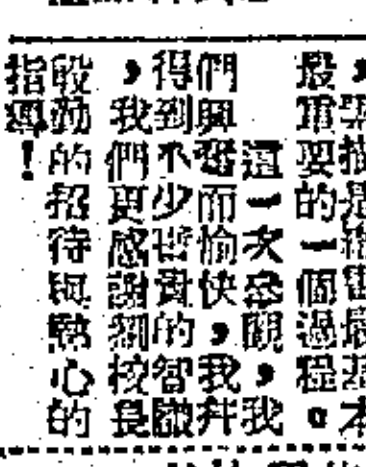 最重要的一個過程。
這一次參觀，我
們興奮而愉快，我幷
得到不少寶貴的智識
，我們更感謝劉校長
殷勤的招待與熱心的
指導！